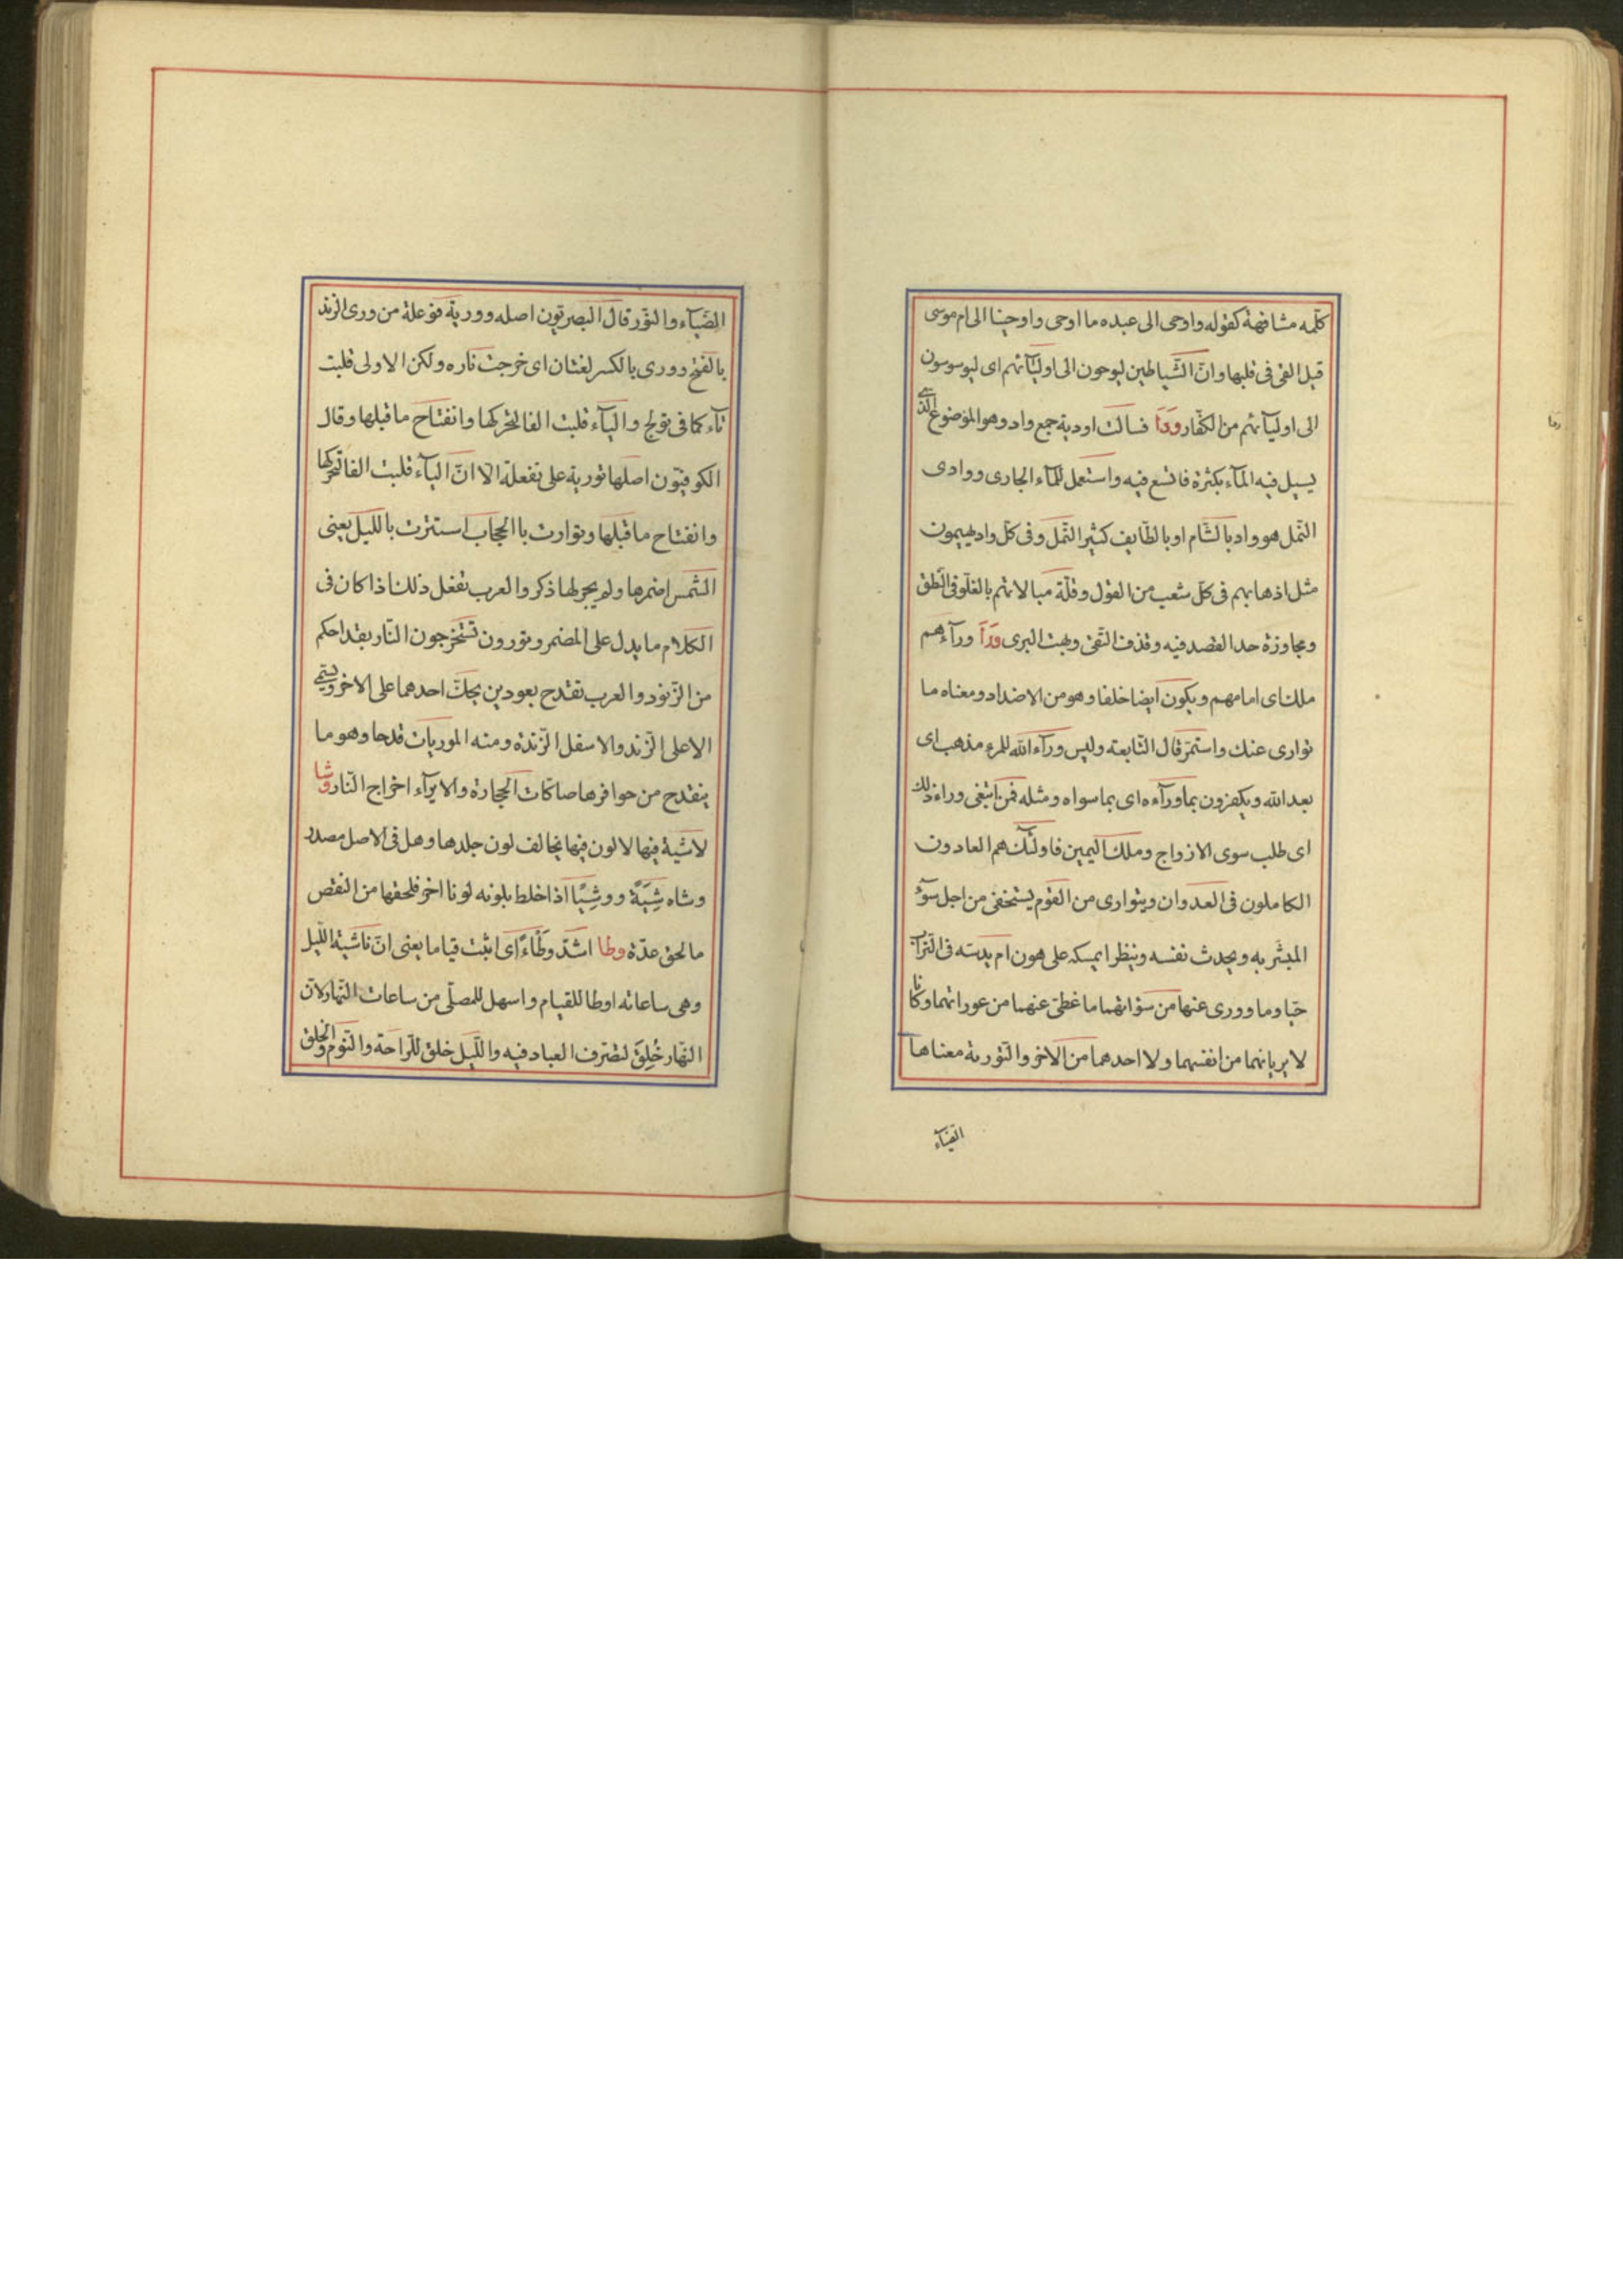 كلّمه مشافهة كقوله واوحى الى عبده ما اوحى واوحينا الى ام موسى
قيل القى فى قلبها وانّ الشّياطين ليوحون الى اوليآئهم اى ليوسوسون
الى اوليآئهم من الكفّار ودآ فسالت اودية جمع واد وهو الموضوع الذى
يسيل فيه المآء بكثرة فاتسع فيه واستعمل للمآء الجارى ووادى
النّمل هو واد بالشّام او بالطّايف كثير النّمل وفى كلّ واد يهيمون
مثل لذهابهم فى كلّ شعب من القول وقلّة مبالاتهم بالغلّو فى النّطق
ومجاوزة حد القصد فيه وقذف التّقىّ وبهت البرى ورآ ورآءهم
ملك اى امامهم ويكون ايضا خلفا وهو من الاضداد ومعناه ما
توارى عنك واستمرّ قال النّابغة وليس ورآء الله للمرء مذهب اى
بعد الله ويكفرون بما ورآءه اى بما سواه ومثله فمن ابتغى وراء ذلك
اى طلب سوى الازواج وملك اليمين فاولئك هم العادون
الكاملون فى العدوان ويتوارى من القوم يستخفى من اجل سوء
المبشّر به ويحدث نفسه وينظر ايمسكه على هون ام يدسّه فى التراب
حيّا وما وورى عنها من سؤاتهما ما غطى عنهما من عوراتهما وكانا
لا يريانهما من انفسهما ولا احدهما من الاخر والتّورية معناها
الضيآء
الضّيآء والنّور قال البصريّون اصله وورية فوعلة من ورى الزند
بالفتح وورى بالكسر لغتان اى خرجت ناره ولكن الاولى قلبت
تآء كما فى تولج واليآء قلبت الفا لتحرّكها وانفتاح ما قبلها وقال
الكوفيّون اصلها تورية على تفعلة الا انّ اليآء قلبت الفا لتحرّكها
وانفتاح ما قبلها وتوارت بالحجاب استترت بالليل يعنى
الشّمس اضمرها ولم يجر لها ذكر والعرب تفعل ذلك اذا كان فى
الكلام ما يدل على المضمر وتورون تستخرجون النّار بقداحكم
من الزّنود والعرب تقتدح بعودين يحكّ احدهما على الاخر ويسّمى
الاعلى الزّند والاسفل الزّندة ومنه الموريات قدحا وهو ما
ينقدح من حوافرها صاكّات الحجارة والايرآء اخراج النّار وشا
لاشية فيها لا لون فيها يخالف لون جلدها وهل فى الاصل مصدر
وشاه شِيَةً ووشيًا اذا خلط بلونه لونا اخر فلحقها من النقص
ما لحق عدّة وطا اشدّ وطأءً اى اثبت قياما يعنى انّ ناشية اللّيل
وهى ساعاته اوطا للقيام واسهل للمصلّى من ساعات النّهار لانّ
النّهار خُلِقَ لتصّرف العباد فيه واللّيل خلق للرّاحة والنّوم والخلق